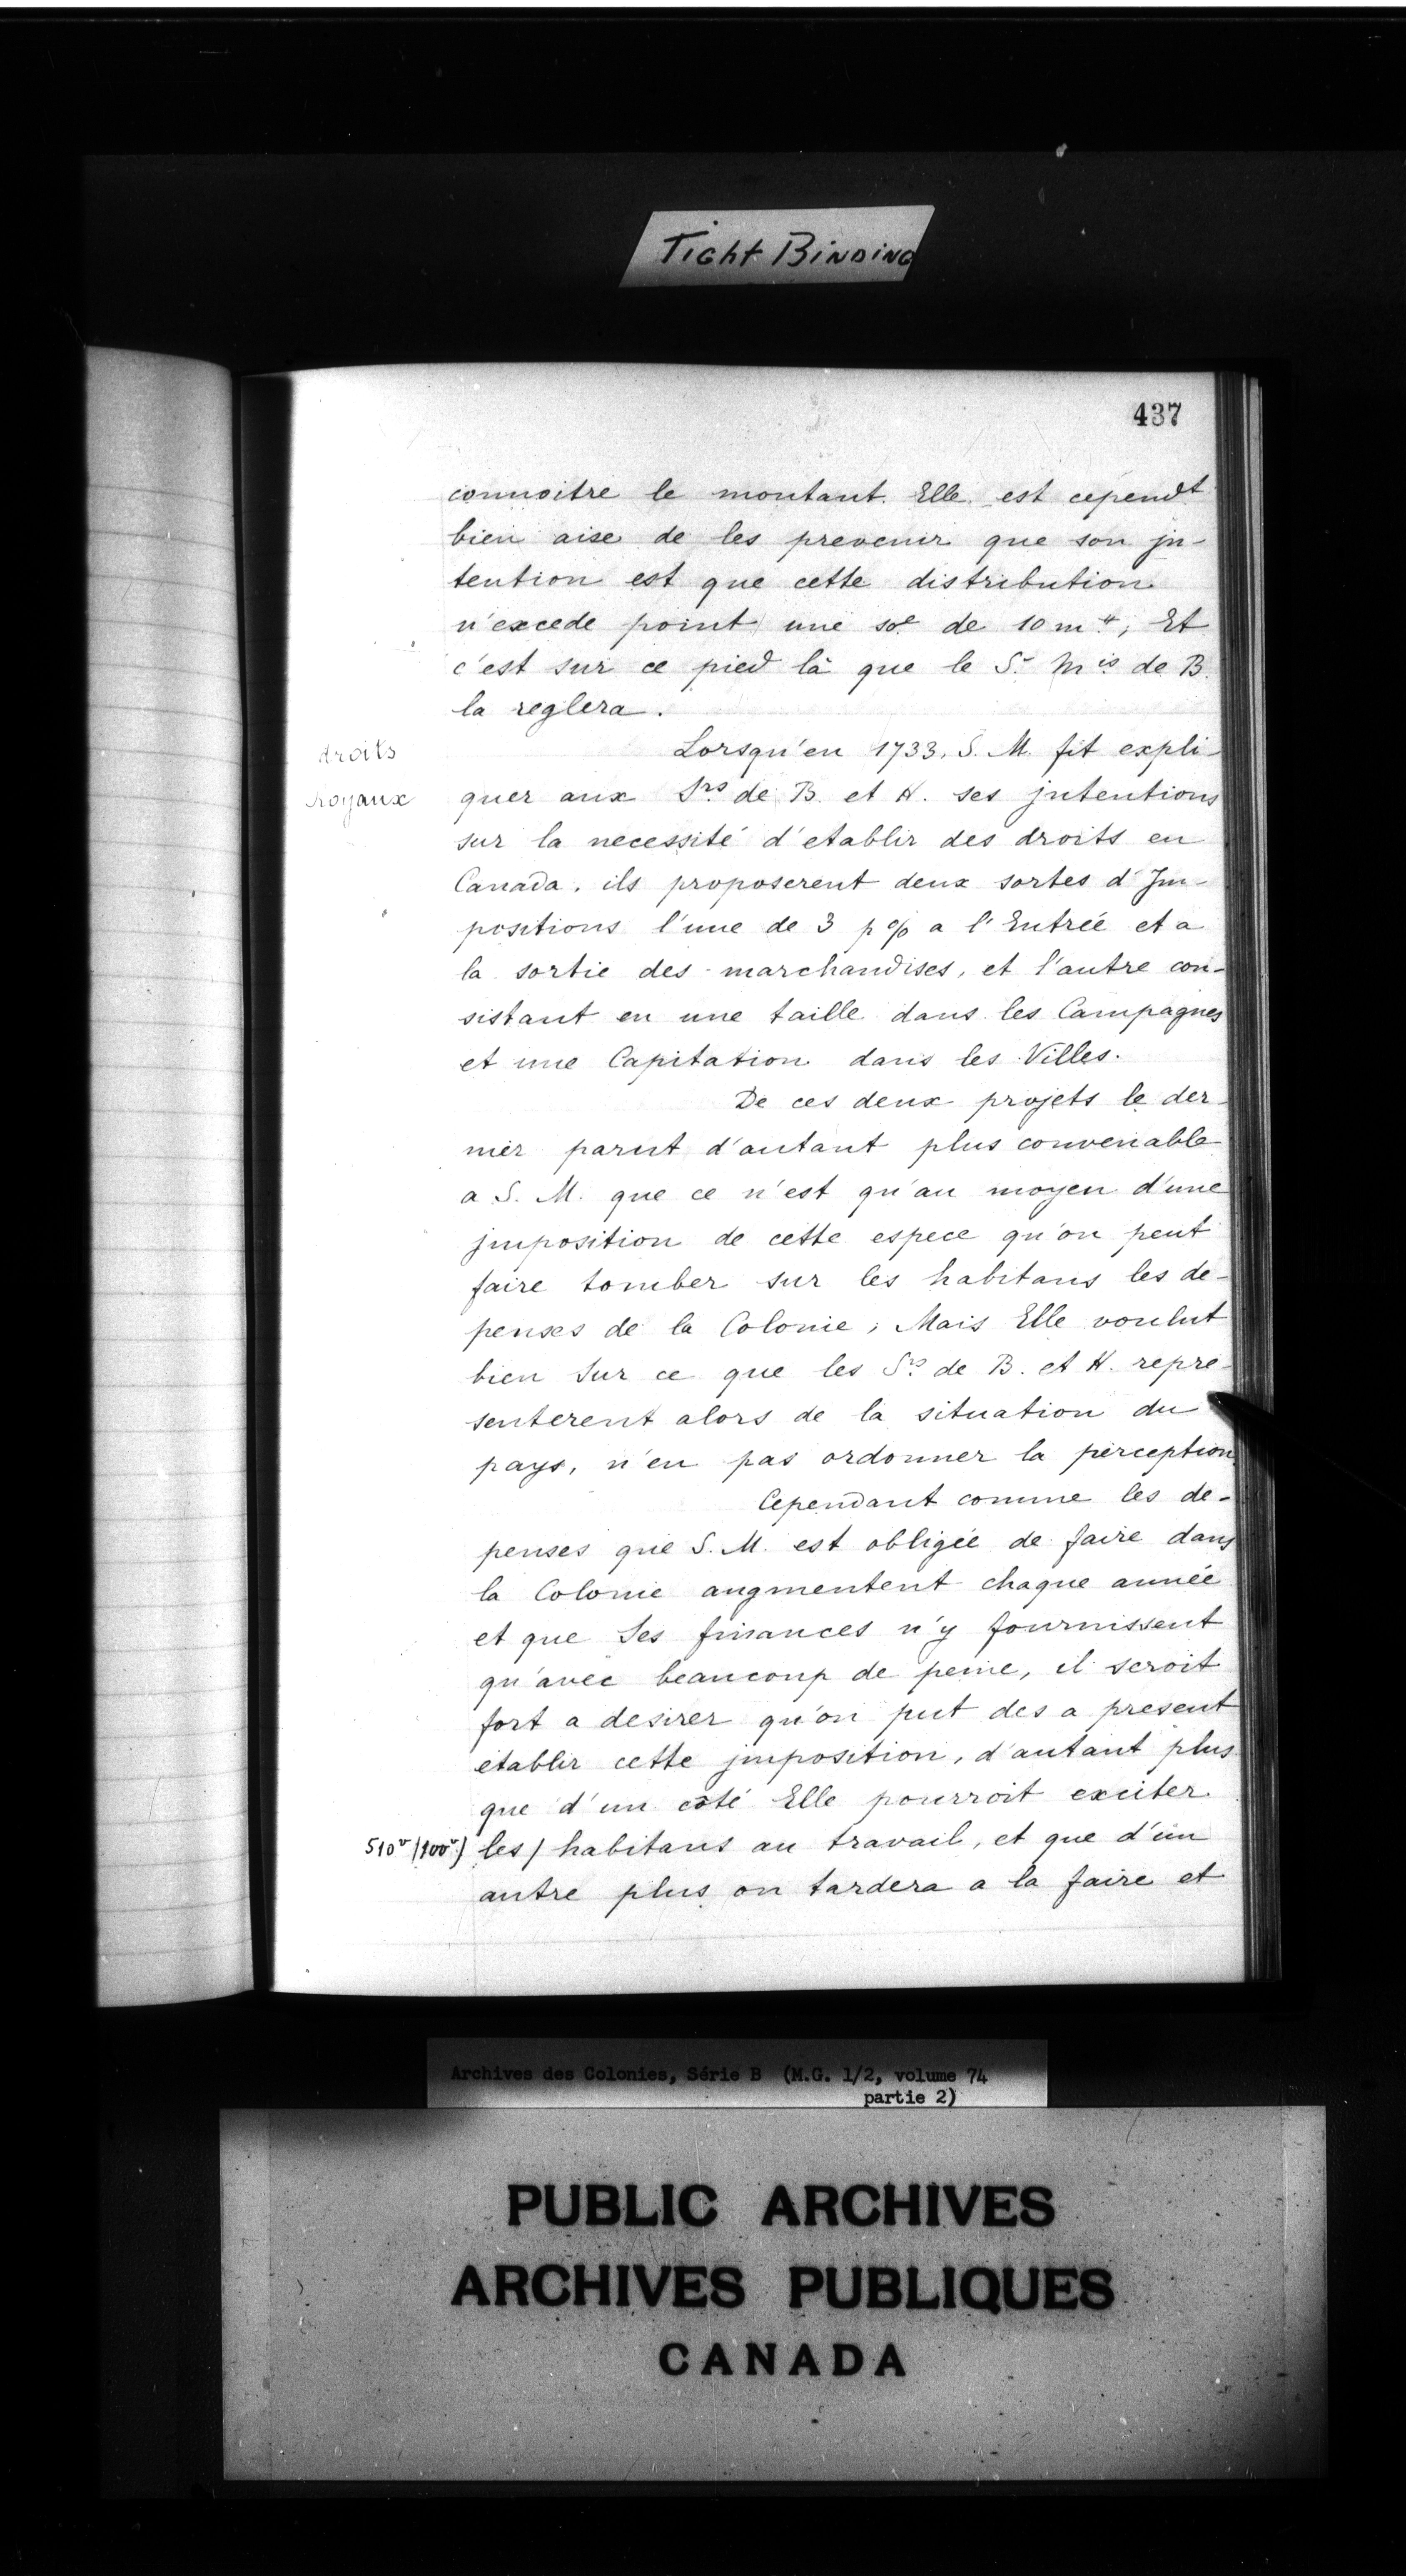 Tight Binding
437
connoitre le montant. Elle est cependt
bien aise de les prevenir que son jn-
tention est que cette distribution
n'excede point une soe de 10 m ₶; Et
c'est sur ce pied là que le Sr Mis de B.
la reglera.
droits
royaux
Lorsqu'en 1733, S. M. fit expli-
quer aux Srs de B. et H. ses jntentions
sur la necessité d'etablir des droits en
Canada, ils proposerent deux sortes d'Jm-
positions l'une de 3 p % a l'Entrée et a
la sortie des marchandises, et l'autre con-
sistant en une taille dans les Campagnes
et une Capitation dans les Villes.
De ces deux projets le der-
nier parut d'autant plus convenable
a S. M. que ce n'est qu'au moyen d'une
jmposition de cette espece qu'on peut
faire tomber sur les habitans les de-
penses de la Colonie; Mais Elle voulut
bien Sur ce que les Srs de B. et H. repre-
senterent alors de la situation du
pays, n'en pas ordonner la perception.
Cependant comme les de-
penses que S. M. est obligée de faire dans
la Colonie augmentent chaque année
et que Ses finances n'y fournissent
qu'avec beaucoup de peine, il seroit
fort a desirer qu'on put des a present
etablir cette jmposition, d'autant plus
que d'un côté Elle pourroit exciter
510v (100v) les / habitans au travail, et que d'un
autre plus on tardera a la faire et
Archives des Colonies, Série B (M.G. 1/2, volume 74
partie 2)
PUBLIC ARCHIVES
ARCHIVES PUBLIQUES
CANADA